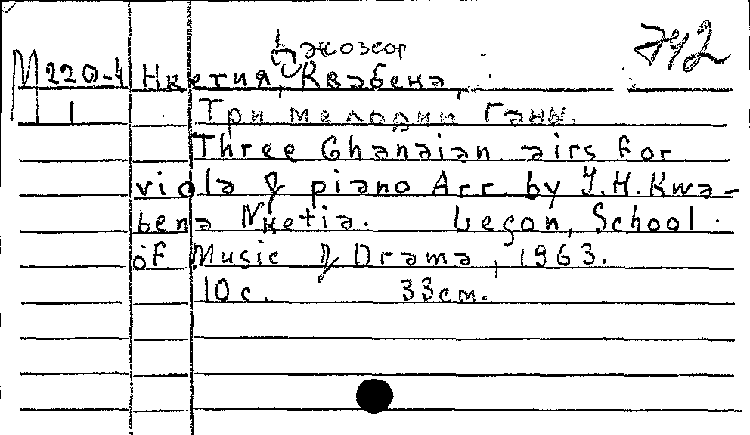 742
Джозеф
М220-4 Нкетия, Квабена.
1 Три мелодии Ганы.
Three Ghanaian airs for
viola & piano Arr. by J.H. Kwa-
bena Nketia. Legon, School
of Music & Drama, 1963.
10 с. 33 см.